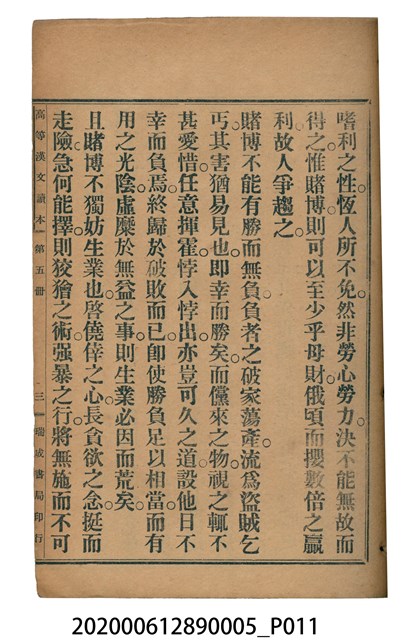 嗜利之性。恆人所不免。然非勞心勞力。決不能無故而
得之。惟賭博則可以至少乎母財。俄頃而攫數倍之贏
利。故人爭趨之。
賭博不能有勝而無負。負者之破家蕩產。流爲盜賊乞
丐。其害猶易見也。即幸而勝矣。而儻來之物。視之輒不
甚愛惜。任意揮霍。悖入悖出。亦豈可久之道。設他日不
幸而負焉。終歸於破敗而已。卽使勝負足以相當。而有
用之光陰。虛糜於無益之事。則生業必因而荒矣。
且賭博不獨妨生業也。啓僥倖之心。長貪欲之念。挺而
走險。急何能擇。則狡獪之術。强暴之行。將無施而不可
高等漢文讀本 第五册 三 瑞成書局印行
202000612890005_P011